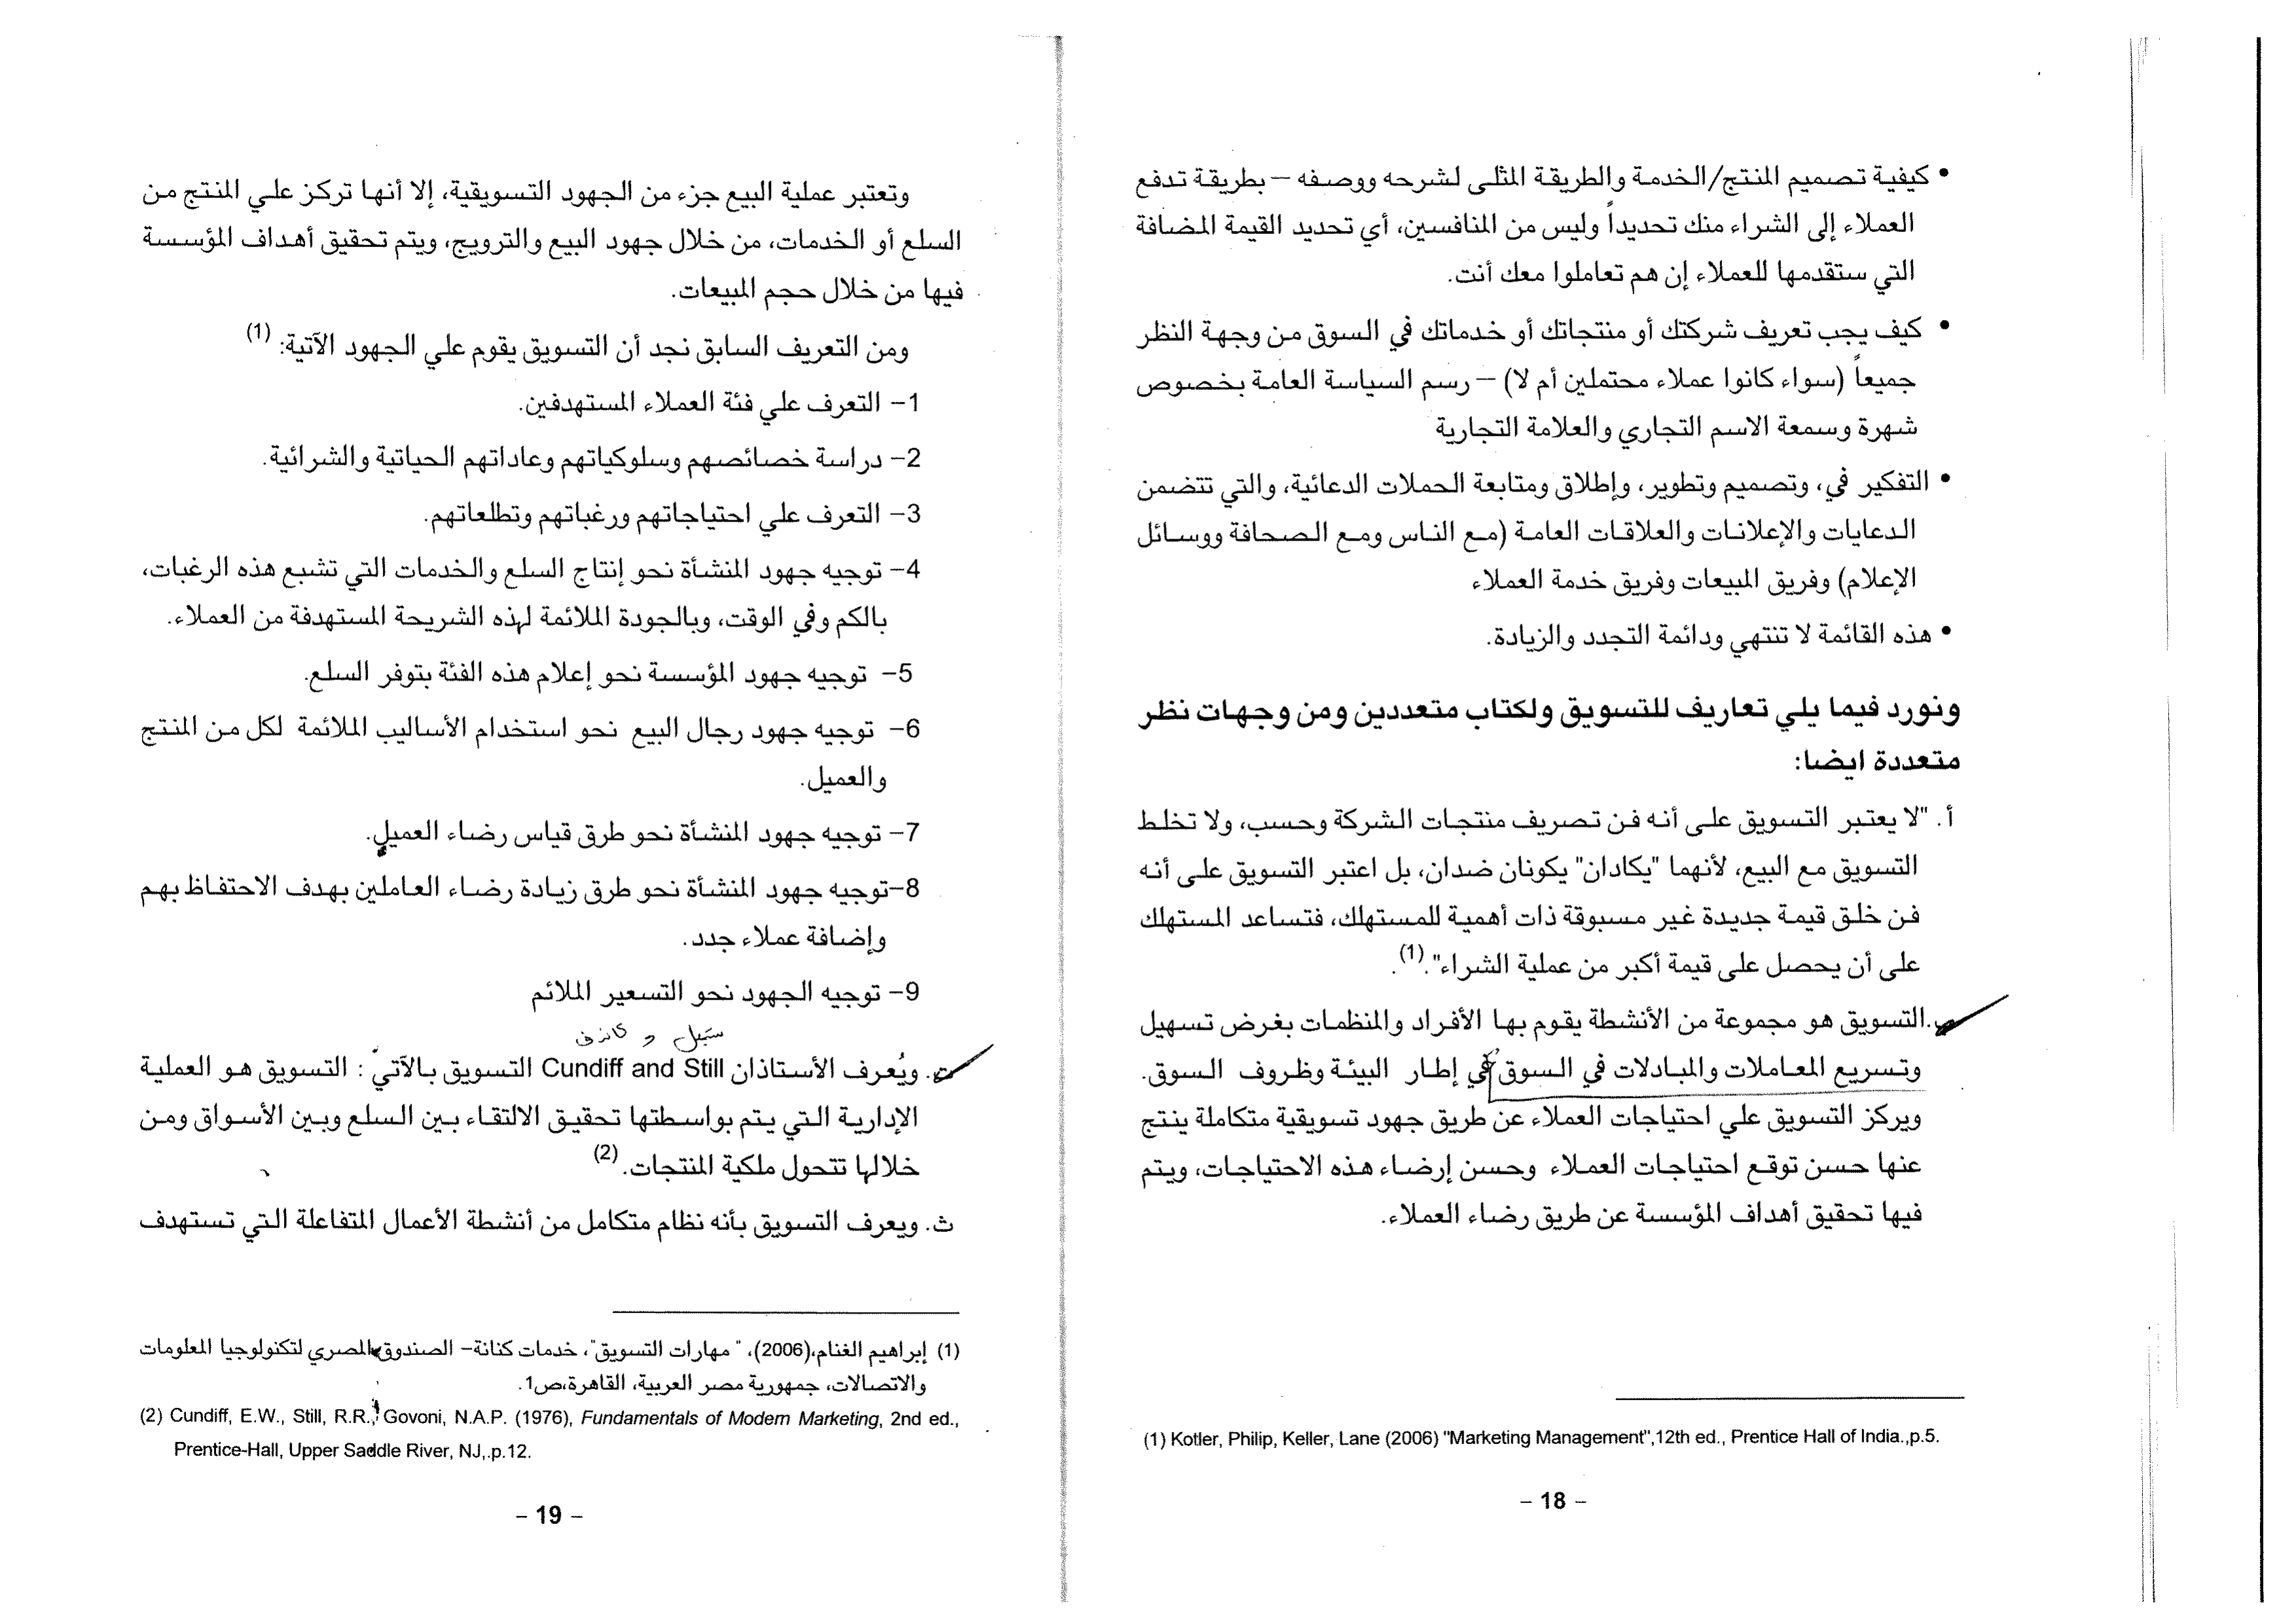 • كيفية تصميم المنتج/الخدمة والطريقة المثلى لشرحه ووصفه – بطريقة تدفع
العملاء إلى الشراء منك تحديداً وليس من المنافسين، أي تحديد القيمة المضافة
التي ستقدمها للعملاء إن هم تعاملوا معك أنت.
• كيف يجب تعريف شركتك أو منتجاتك أو خدماتك في السوق من وجهة النظر
جميعاً (سواء كانوا عملاء محتملين أم لا) – رسم السياسة العامة بخصوص
شهرة وسمعة الاسم التجاري والعلامة التجارية
• التفكير في، وتصميم وتطوير، وإطلاق ومتابعة الحملات الدعائية، والتي تتضمن
الدعايات والإعلانات والعلاقات العامة (مع الناس ومع الصحافة ووسائل
الإعلام) وفريق المبيعات وفريق خدمة العملاء
• هذه القائمة لا تنتهي ودائمة التجدد والزيادة.
ونورد فيما يلي تعاريف للتسويق ولكتاب متعددين ومن وجهات نظر
متعددة ايضا:
أ. "لا يعتبر التسويق على أنه فن تصريف منتجات الشركة وحسب، ولا تخلط
التسويق مع البيع، لأنهما "يكادان" يكونان ضدان، بل اعتبر التسويق على أنه
فن خلق قيمة جديدة غير مسبوقة ذات أهمية للمستهلك، فتساعد المستهلك
على أن يحصل على قيمة أكبر من عملية الشراء".(1).
ب.التسويق هو مجموعة من الأنشطة يقوم بها الأفراد والمنظمات بغرض تسهيل
وتسريع المعاملات والمبادلات في السوق في إطار البيئة وظروف السوق.
ويركز التسويق علي احتياجات العملاء عن طريق جهود تسويقية متكاملة ينتج
عنها حسن توقع احتياجات العملاء وحسن إرضاء هذه الاحتياجات، ويتم
فيها تحقيق أهداف المؤسسة عن طريق رضاء العملاء.
(1) Kotler, Philip, Keller, Lane (2006) "Marketing Management",12th ed., Prentice Hall of India.,p.5.
– 18 –
وتعتبر عملية البيع جزء من الجهود التسويقية، إلا أنها تركز علي المنتج من
السلع أو الخدمات، من خلال جهود البيع والترويج، ويتم تحقيق أهداف المؤسسة
فيها من خلال حجم المبيعات.
ومن التعريف السابق نجد أن التسويق يقوم علي الجهود الآتية: (1)
1– التعرف علي فئة العملاء المستهدفين.
2– دراسة خصائصهم وسلوكياتهم وعاداتهم الحياتية والشرائية.
3– التعرف علي احتياجاتهم ورغباتهم وتطلعاتهم.
4– توجيه جهود المنشأة نحو إنتاج السلع والخدمات التي تشبع هذه الرغبات،
بالكم وفي الوقت، وبالجودة الملائمة لهذه الشريحة المستهدفة من العملاء.
5– توجيه جهود المؤسسة نحو إعلام هذه الفئة بتوفر السلع.
6– توجيه جهود رجال البيع نحو استخدام الأساليب الملائمة لكل من المنتج
والعميل.
7– توجيه جهود المنشأة نحو طرق قياس رضاء العميل.
8–توجيه جهود المنشأة نحو طرق زيادة رضاء العاملين بهدف الاحتفاظ بهم
وإضافة عملاء جدد.
9– توجيه الجهود نحو التسعير الملائم
ت. ويُعرف الأستاذان Cundiff and Still التسويق بالآتي : التسويق هو العملية
الإدارية التي يتم بواسطتها تحقيق الالتقاء بين السلع وبين الأسواق ومن
خلالها تتحول ملكية المنتجات.(2)
ث. ويعرف التسويق بأنه نظام متكامل من أنشطة الأعمال المتفاعلة التي تستهدف
(1) إبراهيم الغنام،(2006)، " مهارات التسويق"، خدمات كنانة– الصندوق المصري لتكنولوجيا المعلومات
والاتصالات، جمهورية مصر العربية، القاهرة،ص1.
(2) Cundiff, E.W., Still, R.R., Govoni, N.A.P. (1976), Fundamentals of Modern Marketing, 2nd ed.,
Prentice-Hall, Upper Saddle River, NJ,.p.12.
– 19 –